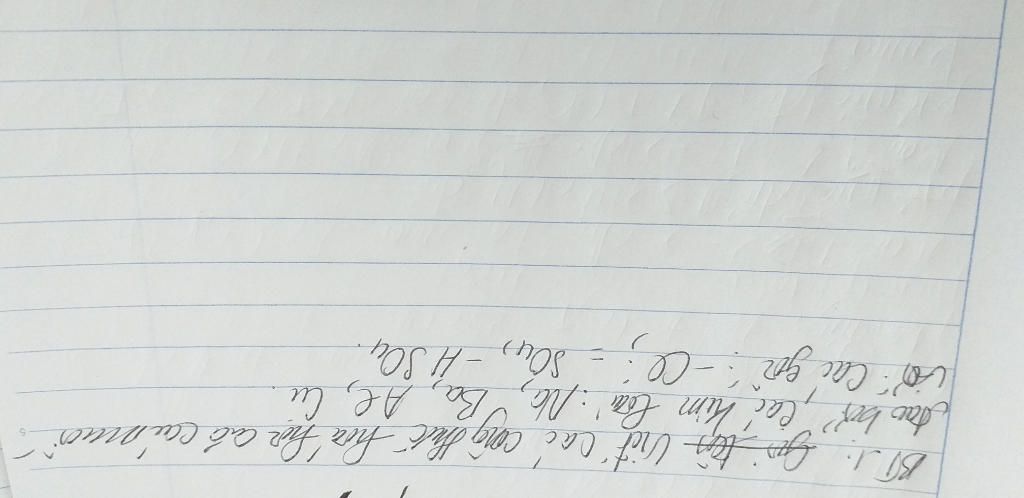 BT 1: Gọi tên Viết các công thức hóa học của các muối
tạo bởi các kim loại: Na, Ba, Al, Cu.
với các gốc: - Cl; = SO4, - HSO4.